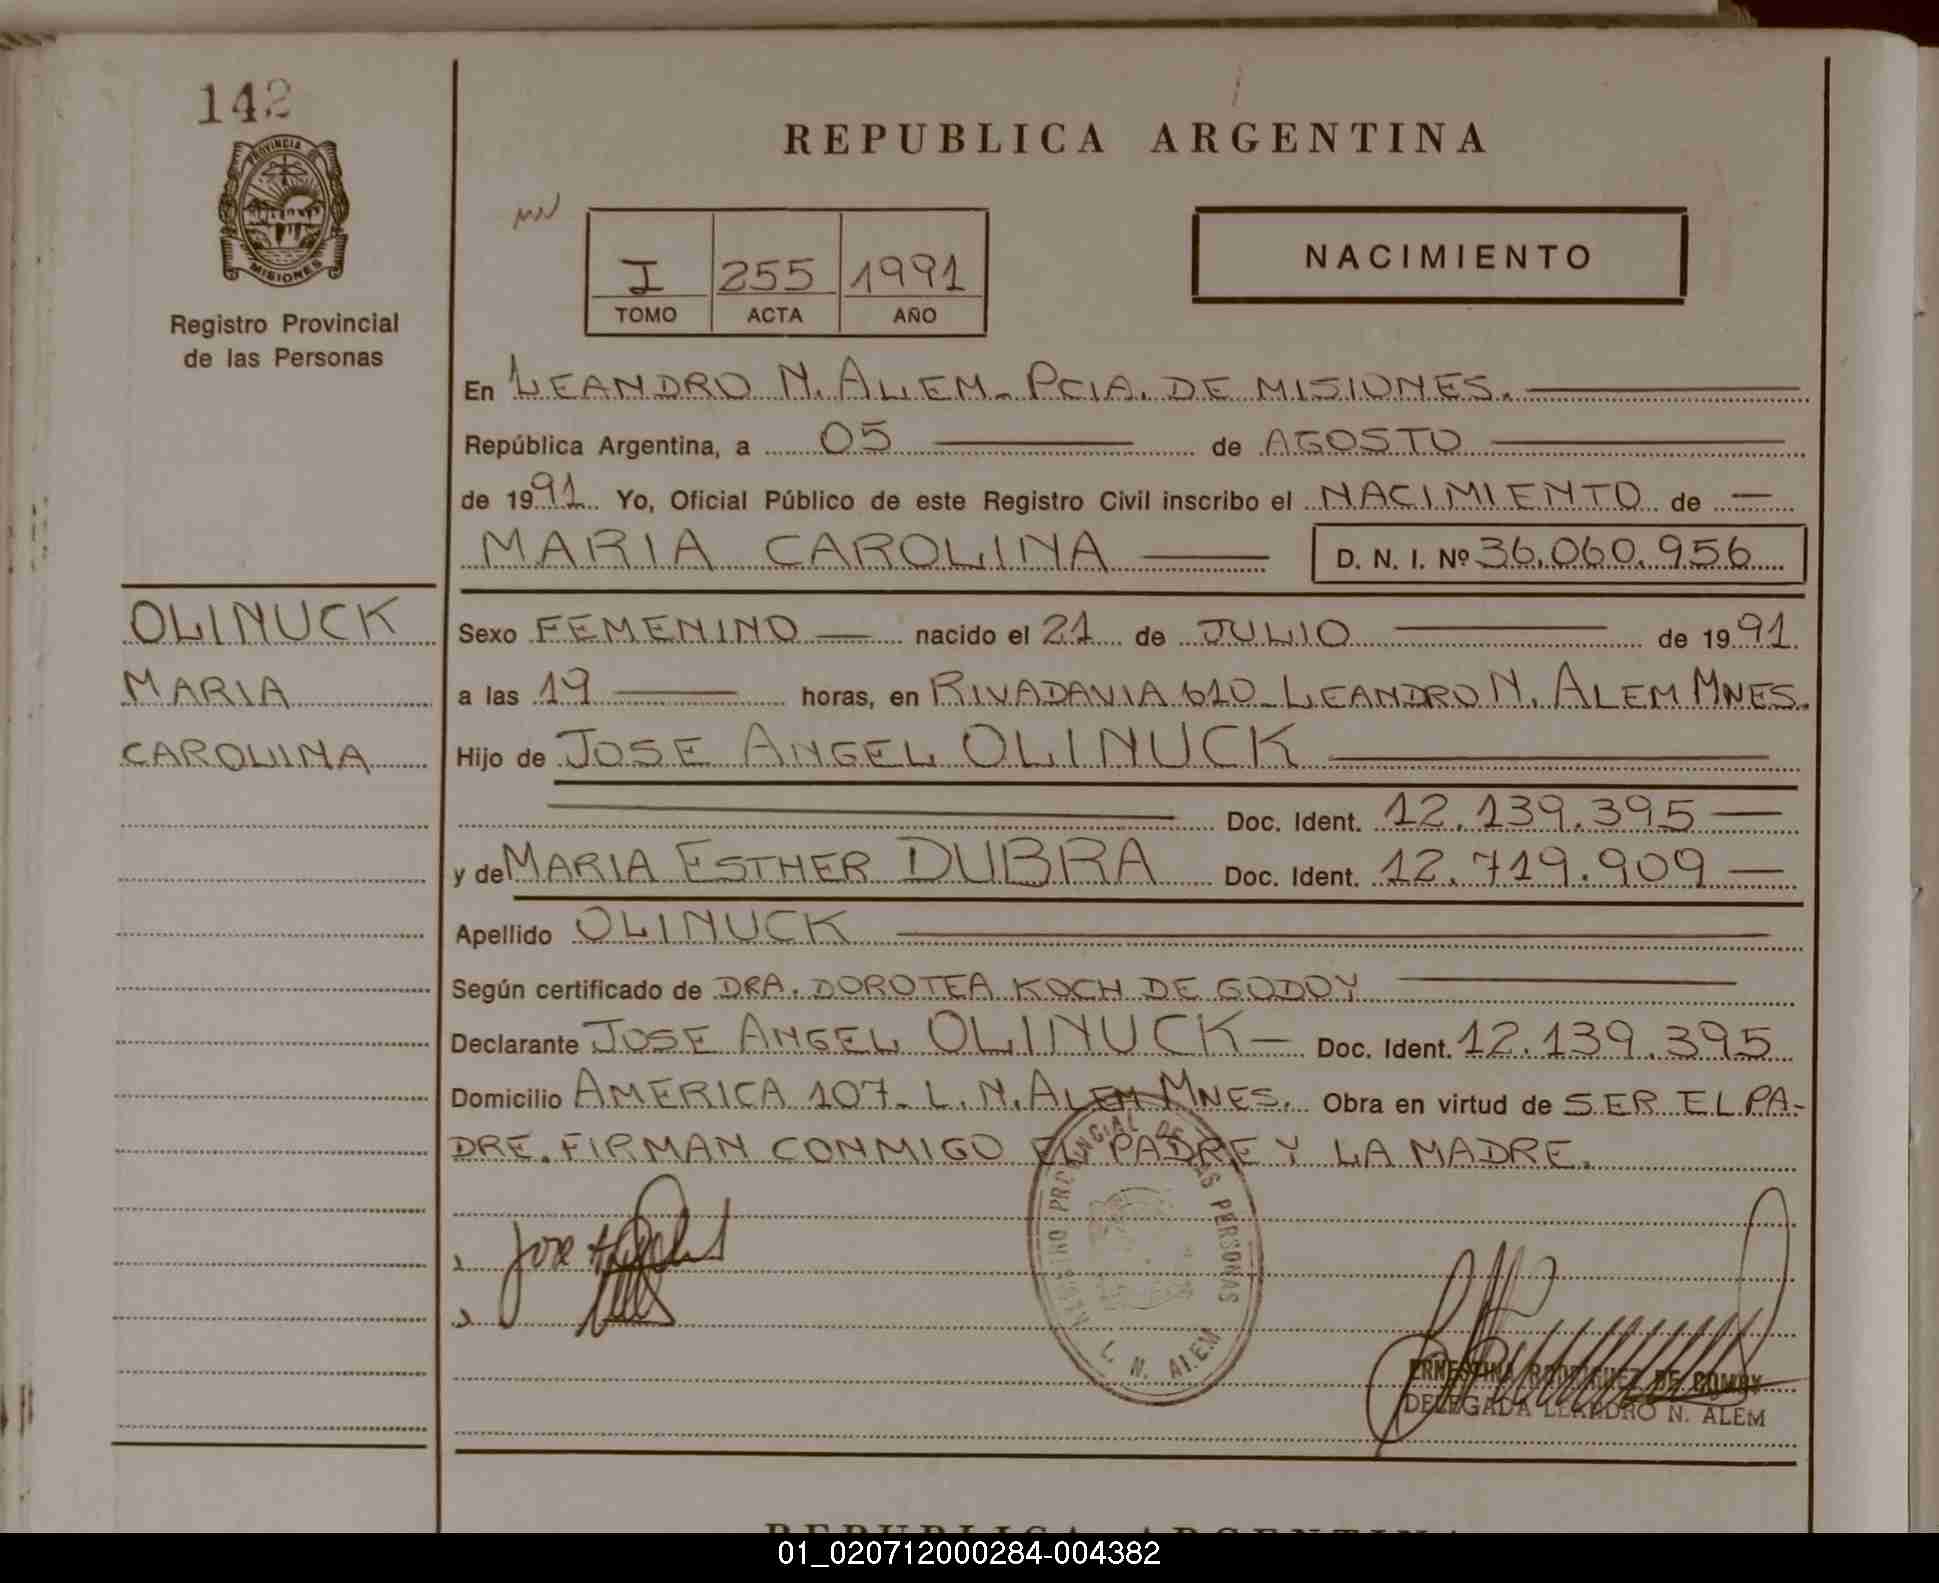 142
PROVINCIA DE
MISIONES
Registro Provincial
de las Personas
OLINUCK
MARIA
CAROLINA
REPUBLICA ARGENTINA
I 255 1991
TOMO ACTA AÑO
NACIMIENTO
En LEANDRO N. ALEM - PCIA. DE MISIONES.
República Argentina, a 05 de AGOSTO
de 1991 Yo, Oficial Público de este Registro Civil inscribo el NACIMIENTO de
MARIA CAROLINA D. N. I. Nº 36.060.956
Sexo FEMENINO nacido el 21 de JULIO de 1991.
a las 19 horas, en RIVADAVIA 610 - LEANDRO N. ALEM MNES.
Hijo de JOSE ANGEL OLINUCK
Doc. Ident. 12.139.395
y de MARIA ESTHER DUBRA Doc. Ident. 12.719.909
Apellido OLINUCK
Según certificado de DRA. DOROTEA KOCH DE GODOY
Declarante JOSE ANGEL OLINUCK Doc. Ident. 12.139.395
Domicilio AMERICA 107 - L. N. ALEM MNES. Obra en virtud de SER EL PA-
DRE. FIRMAN CONMIGO EL PADRE Y LA MADRE.
REGISTRO PROVINCIAL DE LAS PERSONAS
L. N. ALEM
Jose
ERNESTINA RODRIGUEZ DE
DELEGADA LEANDRO N. ALEM
REPUBLICA ARGENTINA
01_020712000284-004382